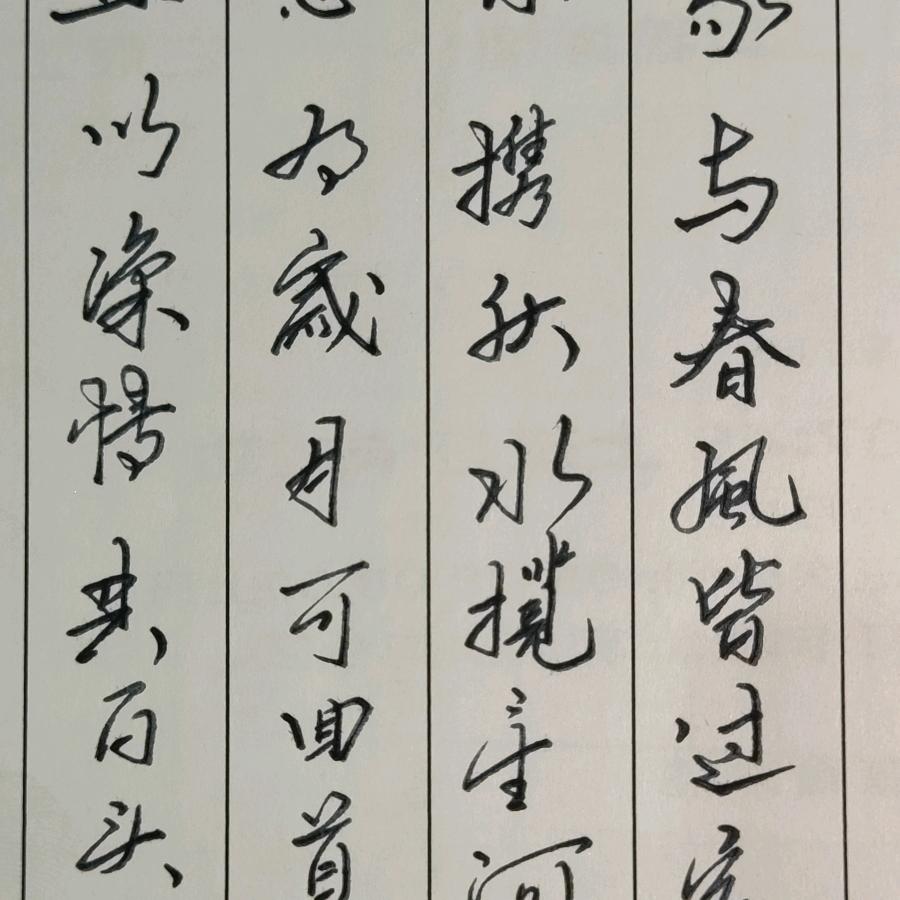 与春風皆过
携秋水攬星河
有歲月可回首
以深情共白头